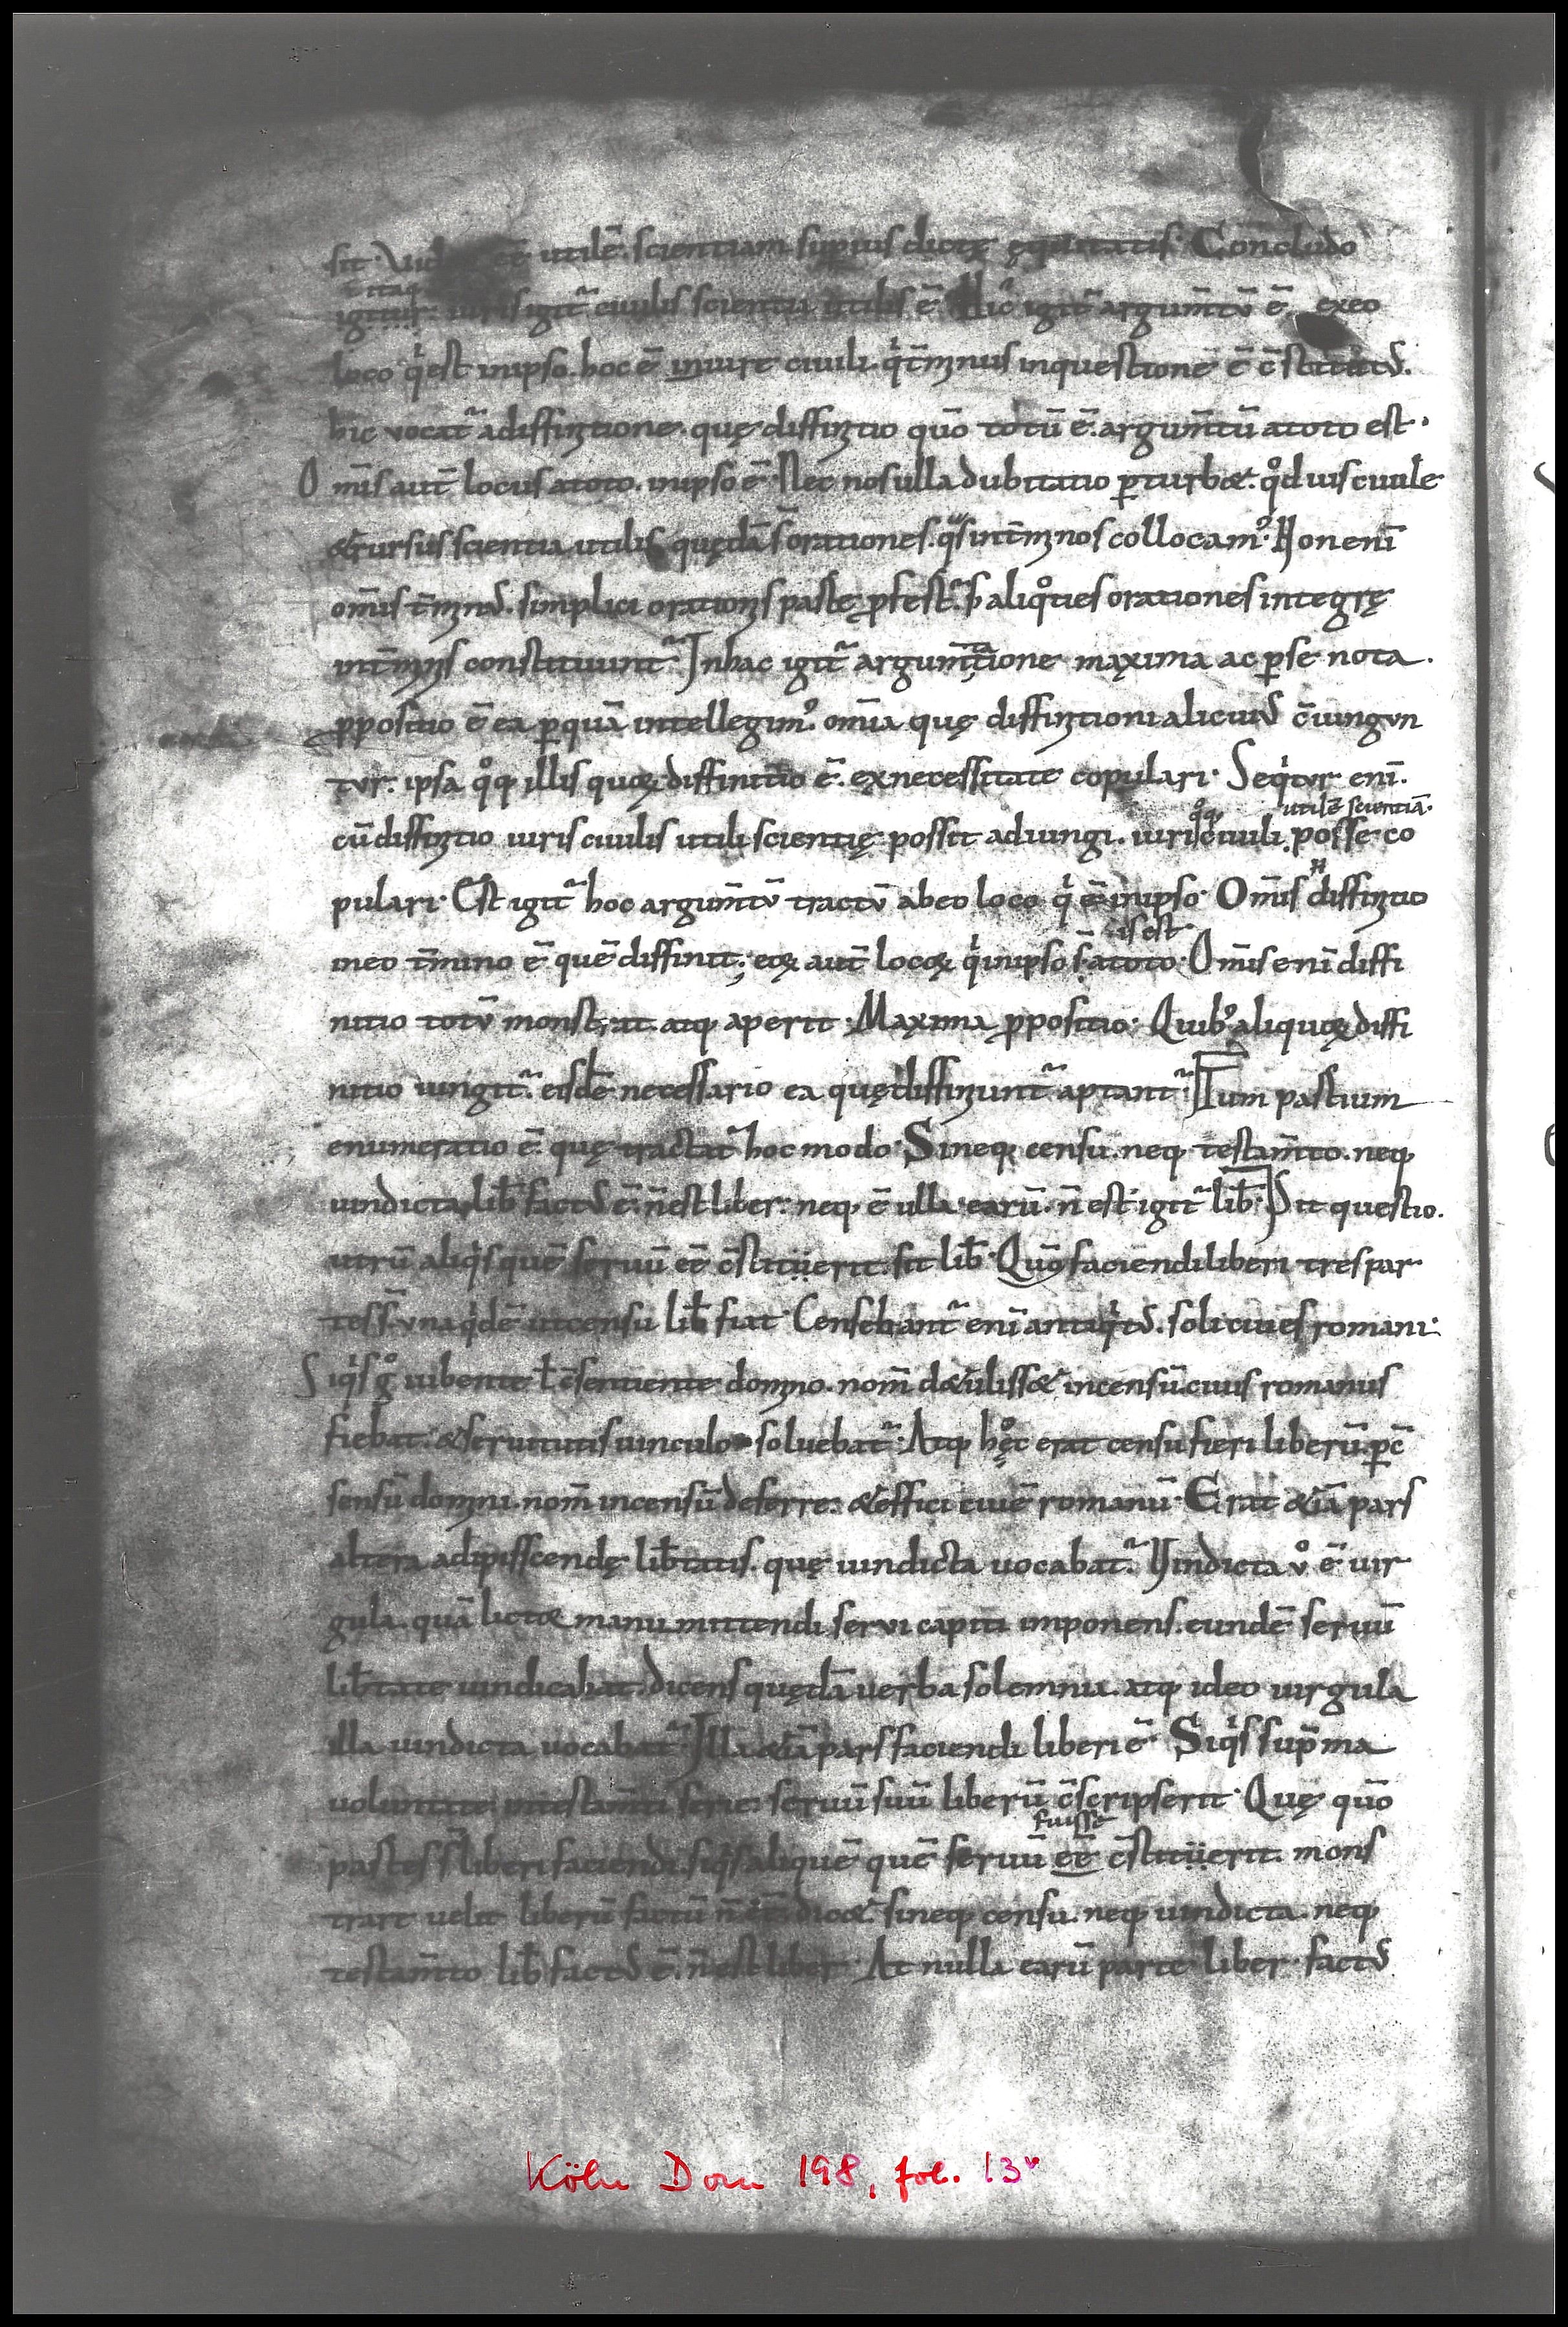 sit. ee͂ utile͂. scientiam superius dictę ęquitatis. Concludo
itaq;
igitur. iuris igit᷑ ciuilis scientia utilis ē. Hic igit᷑ argum̄tū ē exeo
loco qͥ est inipso. hoc ē iniure ciuili. q̇ t̄minus inquestione ē c̄stitutus.
hic uocat᷑ adiffinitione. quę diffinitio quō totū ē. argum̄tū atoto est.
Om̄is aut̄ locus atoto. inipso ē. Nec nos ulla dubitatio p̱turbet. qͦd ius ciuile
& rursus scientia utilis quędā s̄ orationes. quas int̄minos collocam᷒. Non eni͂
om̄is t̄minus. simplici orationis parte ꝓfert᷑. s; aliqͦties orationes integrę
int̄minis constituunt᷑. Inhac igit᷑ argum̄tatione maxima ac p̱se nota.
ꝓpositio ē ea p̱quā intellegim᷒. om̄ia quę diffinitioni alicuius c̄iungun
tur. ipsa qͦq; illis quoꝝ diffinitio ē. exnecessitate copulari. Seqͥtur eni͂.
qͦq; utilē scientiā.
cū diffinitio iuris ciuilis utili scientię possit adiungi. iuri ciuili posse co
pulari. Est igit᷑ hoc argum̄tū tractū abeo loco qͥ ē inipso. Om̄is diffinitio
is est
ineo t̄mino ē quē diffinit; eoꝝ aut̄ locoꝝ qͥ inipso s̄. atoto. Om̄is eni͂ diffi
nitio totū monstrat. atq; aperit. Maxima ꝓpositio. Quib᷒ aliquoꝝ diffi
nitio iungit᷑. eisdē necessario ea quę diffiniunt᷑ aptant᷑. Tum partium
enumeratio ē. quę tractat᷑ hoc modo. Sineq; censu. neq; testam̄to. neq;
uindicta lib̄ factus ē. n̄ est liber. neq; ē ulla earū. n̄ est igit᷑ lib̄. Sit questio.
utrū aliqͥs quē seruū ee͂ c̄stituerit. sit lib̄. Quō faciendi liberi tres par
tes s̄. una qͥdē ut censu lib̄ fiat. Censebant᷑ eni͂ antiqͥtus. soli ciues romani.
Siqͥs gͦ iubente ł c̄sentiente domino. nom̄ detulisset incensū. ciuis romanus
fiebat. & seruitutis uinculo soluebat᷑. Atq; hoc erat censu fieri liberū. p̱ c̄
sensū domini. nom̄ incensū deferre. & effici ciuē romanū. Erat &iā pars
altera adipisscendę lib̄tatis. quę uindicta uocabat᷑. Uindicta uͦ ē uir
gula. quā lictor manu mittendi serui capiti imponens. eundē seruū
lib̄tate uindicabat. dicens quędā uerba solemnia. atq; ideo uirgula
illa uindicta uocabat᷑. Illa &iā pars faciendi liberi ē. Siqͥs supp̄ma
uoluntate. intestam̄ti serie. seruū suū liberū c̄scripserit. Quę quō
fuisse
partes s̄ liberi faciendi. siqͥs aliquē quē seruū ee͂ c̄stituerit. mons
trare uelit liberū factū n̄ dicet. sineq; censu. neq; uindicta. neq;
testam̄to lib̄ factus ē. n̄ est liber. At nulla earū parte liber. factus
Köln Dom 198, fol. 13v